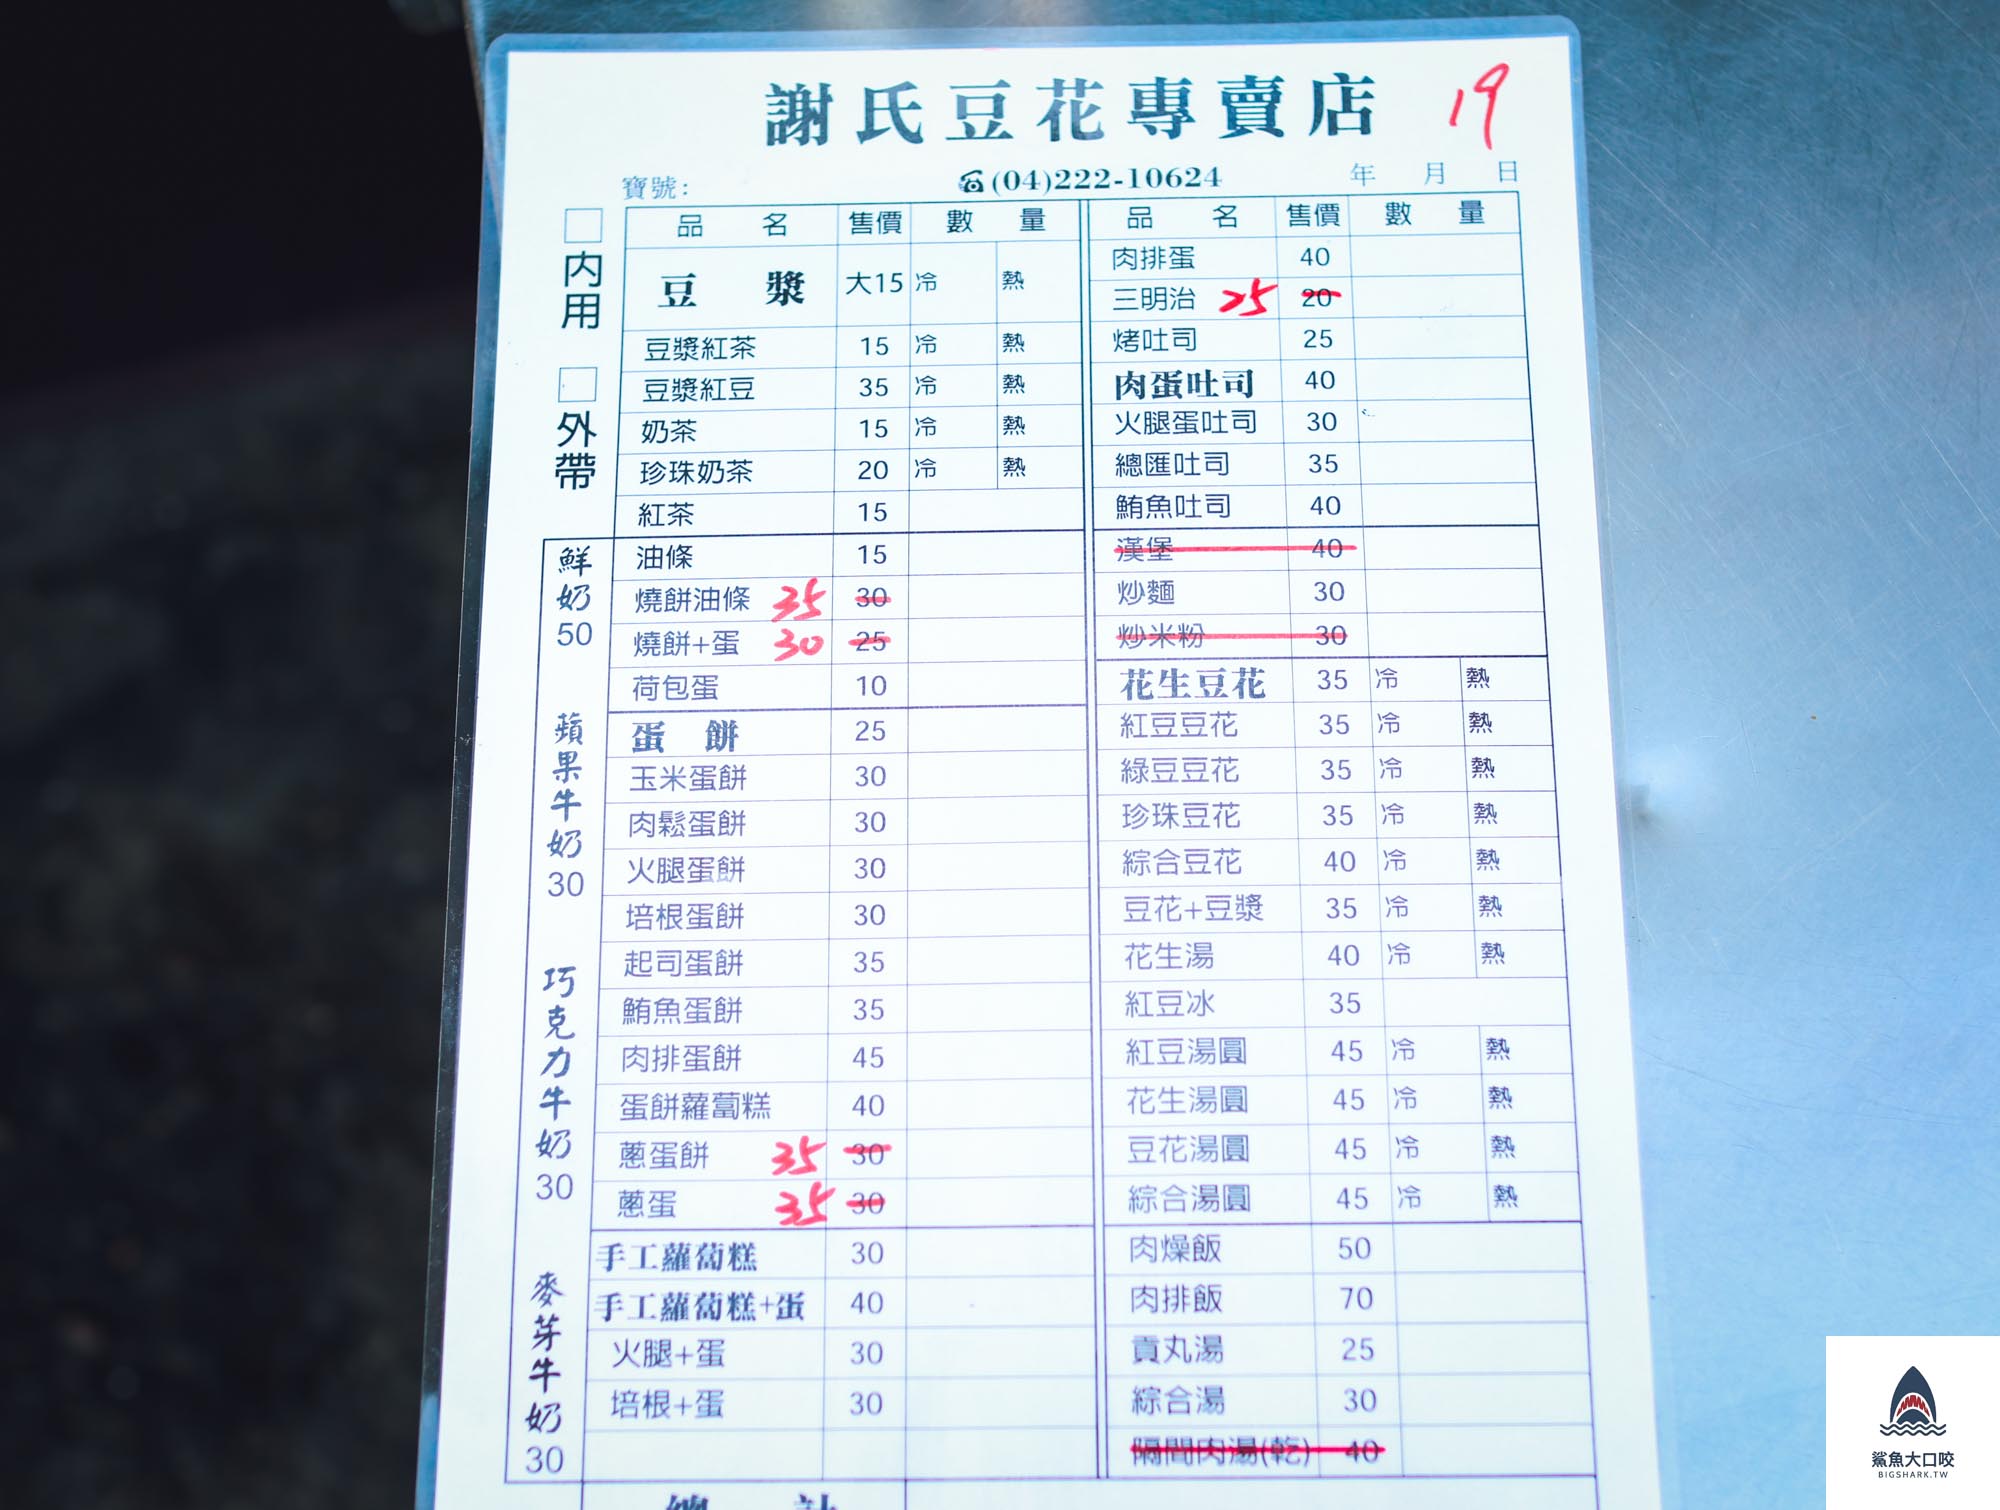 謝氏豆花專賣店 19
寶號: ☎(04)222-10624 年 月 日
□內用 □外帶
品 名 售價 數 量
豆 漿 大15 冷 熱
豆漿紅茶 15 冷 熱
豆漿紅豆 35 冷 熱
奶茶 15 冷 熱
珍珠奶茶 20 冷 熱
紅茶 15
油條 15
燒餅油條 35 30
燒餅+蛋 30 25
荷包蛋 10
蛋 餅 25
玉米蛋餅 30
肉鬆蛋餅 30
火腿蛋餅 30
培根蛋餅 30
起司蛋餅 35
鮪魚蛋餅 35
肉排蛋餅 45
蛋餅蘿蔔糕 40
蔥蛋餅 35 30
蔥蛋 35 30
手工蘿蔔糕 30
手工蘿蔔糕+蛋 40
火腿+蛋 30
培根+蛋 30
鮮奶50
蘋果牛奶30
巧克力牛奶30
麥芽牛奶30
品 名 售價 數 量
肉排蛋 40
三明治 25 20
烤吐司 25
肉蛋吐司 40
火腿蛋吐司 30
總匯吐司 35
鮪魚吐司 40
漢堡 40
炒麵 30
炒米粉 30
花生豆花 35 冷 熱
紅豆豆花 35 冷 熱
綠豆豆花 35 冷 熱
珍珠豆花 35 冷 熱
綜合豆花 40 冷 熱
豆花+豆漿 35 冷 熱
花生湯 40 冷 熱
紅豆冰 35
紅豆湯圓 45 冷 熱
花生湯圓 45 冷 熱
豆花湯圓 45 冷 熱
綜合湯圓 45 冷 熱
肉燥飯 50
肉排飯 70
貢丸湯 25
綜合湯 30
隔間肉湯(乾) 40
總 計
鯊魚大口咬
BIGSHARK.TW